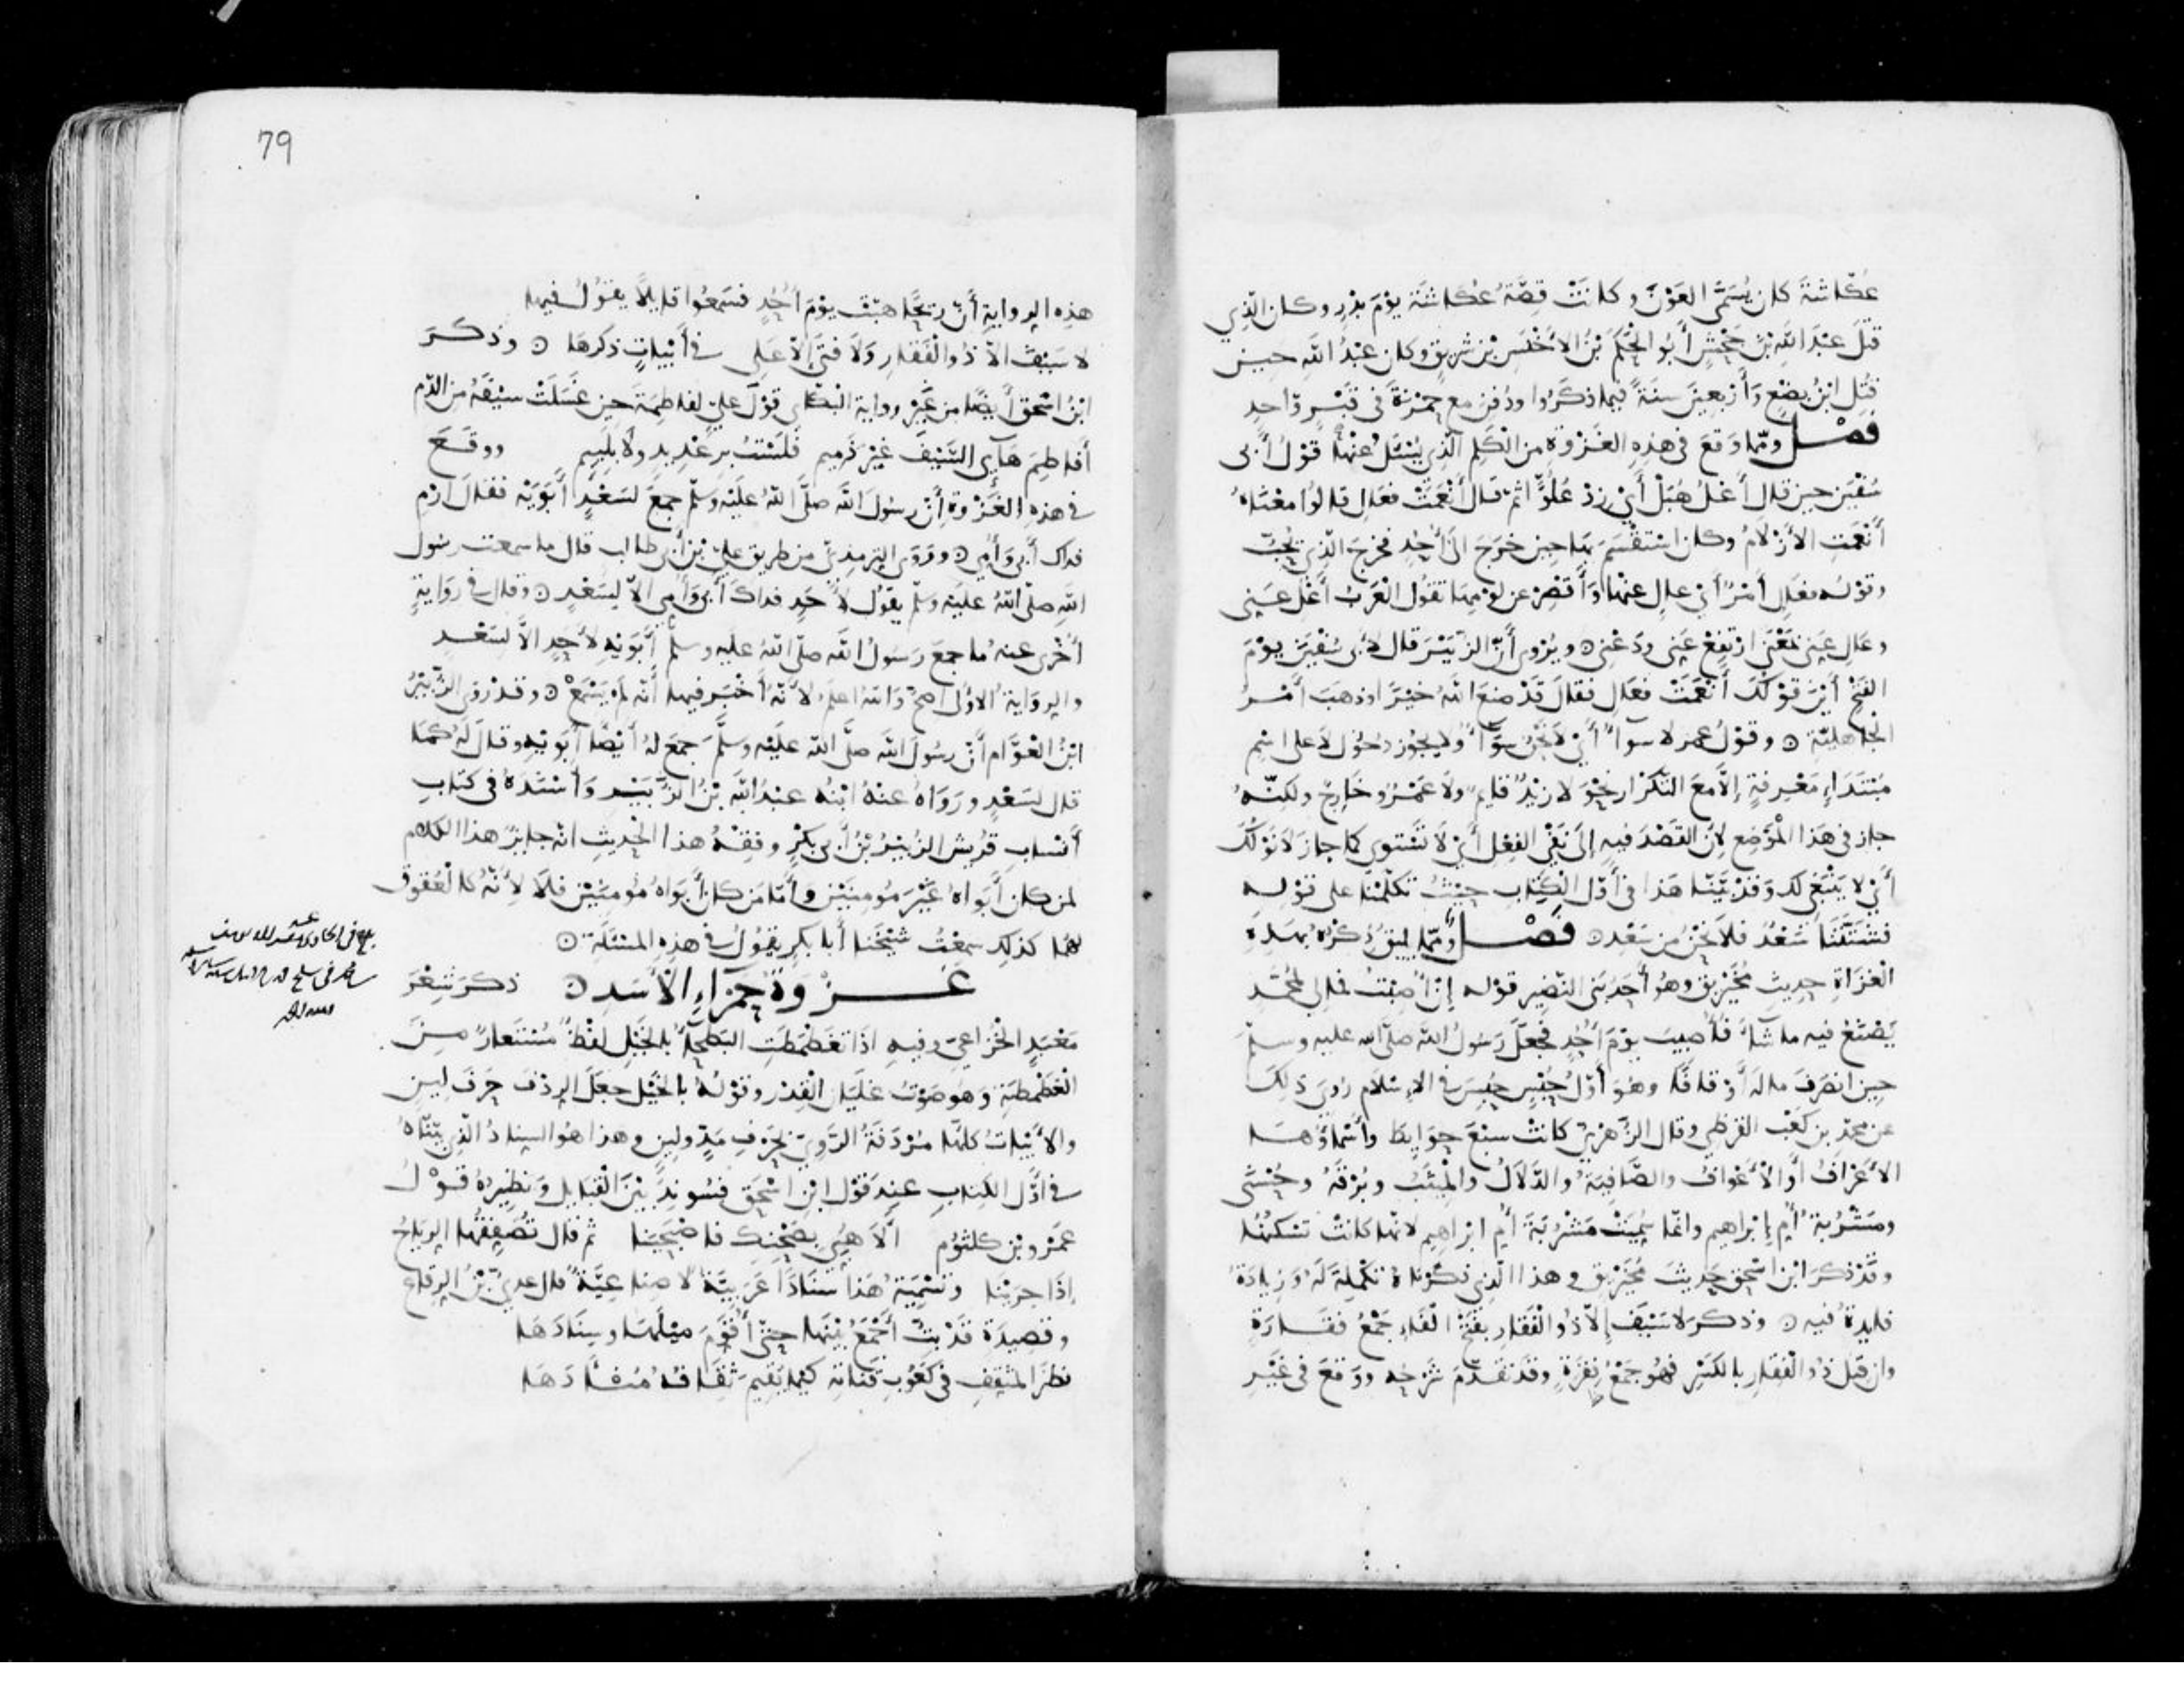 عُكّاشَةَ كان يُسَمَّى العَوْنَ وكانَتْ قِصَّةُ عُكاشَةَ يَوْمَ بَدْرٍ وكان الّذِي
قتلَ عَبْدَ اللهِ بْنَ جَحْشٍ أَبُو الحَكَمِ بْنُ الأَخْنَسِ بْنِ شَرِيقٍ وكان عَبْدُ اللهِ حِينَ
قُتِلَ ابْنَ بِضْعٍ وَأَرْبَعِينَ سَنَةً فيما ذكَرُوا ودُفِنَ مع حَمْزَةَ في قَبْرٍ وَاحِدٍ
فَصْل وممّا وَقعَ في هذِهِ الغَزْوَةِ من الكَلِمِ الّذِي يُسْئَلُ عنْها قوْلُ أَبي
سُفْيَنَ حين قال أُعْلُ هُبَلْ أَيْ زِدْ عُلُوًّا ثم قالَ أَنْعَمَتْ فَعَالِ قالُوا معْنَاهُ
أَنْعَمَتِ الأَزْلَامُ وكان اسْتَقْسَمَ بها حِين خَرَجَ الَى أُحُدٍ فخرَجَ الّذِي يُحِبُّ
وقوْله فعَالِ أَمْرٌ أَيْ عالِ عنْها وَأَقْصِرْ عن لوْمِهَا تقُولُ العَرَبُ أَعْلِ عَنِّى
وعَالِ عَنِّى بمَعْنَى ارْتفِعْ عَنِّى ودَعْنِى ۞ ويُرْوى أَنّ الزُّبَيْرَ قال لأَبى سُفْيَنَ يوْمَ
الفَتْحِ أَيْنَ قوْلُكَ أَنْعَمَتْ فعَالِ فقالَ قَدْ صنعَ اللهُ خيْرًا وذهبَ أَمْرُ
الجاهليّةِ ۞ وقوْلُ عمر لا سوآءً أَيْ لا نَحْنُ سوآءً ولا يجُوز دخُولُ لا على اسْمٍ
مُبْتَدَإٍ مَعْرِفَةٍ إلاّ معَ التّكْرَار نحْوَ لا زيْدٌ قايمٌ ولا عَمْرٌو خَارِجٌ ولكنّهُ
جاز في هَذا المَوْضِع لأَنّ القَصْدَ فيهِ إلى نَفْيِ الفِعْلِ أَيْ لا نَسْتَوِى كما جازَ لا نَوْلُكَ
أَيْ لا يَنْبغِى لك وَقدْ بيَّنّا هَذا في أَوّلِ الكِتَابِ حيْثُ تكَلّمْنا على قوْله
فشَتَّتَنَا سَعْدٌ فلا نَحْنُ من سَعْدِ ۞ فَصْل وممّا يليقُ ذِكْرُهُ بهَذِهِ
الغَزَاةِ حديثُ مُخَيْرِيقٍ وهُو أَحَدُ بَنى النّضِير قوْله إنْ أُصِبْتُ فمالى لمُحَمَّدٍ
يَصْنَعُ فيه ما شآءَ فأُصِيبَ يوْمَ أُحُدٍ فجعَلَ رَسُولُ اللهِ صلّى الله عليه وسلمّ
حينَ انصَرَفَ مالَهُ أَوْقافًا وهُوَ أَوَّلُ حُبْسٍ حُبِسَ في الإسْلَام رُوِىَ ذلِكَ
عن محمّدِ بن كَعْب القُرَظي وقال الزّهْرِيّ كانتْ سَبْعَ حوَايِطَ وأَسْمَاؤُهَا
الأَعْرَافُ أَوِ الأَعْوَافُ والصَّافِيَةُ والدَّلاَلُ والمِيثَبُ وبُرْقَةُ وحُسْنَى
ومَشْرُبةُ أُمِّ إبْراهيم وانّما سُمِّيَتْ مَشْرُبَةَ أُمِّ ابْراهِيم لانها كانَتْ تسْكنُها
وقَدْ ذكَرَ ابْن اسْحق حَدِيثَ مُخَيْرِيق وهذا الّذِى ذكَرْناهُ تكْمِلَةٌ لَهُ وزِيَادَةُ
فايدَةٍ فيه ۞ وذكرَ لا سَيْفَ إلاّ ذُو الفَقَارِ بفَتْحِ الفَاءِ جَمْعُ فَقَارَةٍ
وان قيلَ ذُو الفِقَارِ بالكَسْرِ فهُو جَمْعُ فِقْرَةٍ وقد تقَدّمَ شَرْحُه ووَقعَ في غَيْرِ
79
هذِهِ الرِوايةِ أَنّ رِيحًا هبَّتْ يوْمَ أُحُدٍ فسَمِعُوا قايلًا يقُولُ فيها
لا سَيْفَ الاّ ذُو الفَقَارِ وَلا فتَى إلاّ عَلِى في أَبْيَاتٍ ذكرَهَا ۞ وذكَرَ
ابْنُ اسْحق أَيْضًا من غَيْرِ رِواية البَكّائي قوْلَ عليّ لفَاطِمَةَ حِينَ غَسَلَتْ سَيْفَهُ من الدّم
أَفاطِمَ هَآئِى السَّيْفَ غَيْرَ ذَمِيمِ فلَسْتُ برِعْدِيدٍ ولا بلَئِيمِ ووقَعَ
في هذِهِ الغَزْوةِ أَنّ رسُولَ الله صلَّى اللهُ علَيْه وسَلّم جمعَ لسَعْدٍ أَبَوَيْه فقالَ ارْمِ
فداك أَبى وَأُمّي ۞ ورَوَى التِرمذِيّ من طريق عليّ بْنِ أَبى طالب قال ما سمعت رسُول
اللهِ صلّى اللهُ علَيْه وسلّم يقُولُ لأَحَدٍ فداكَ أَبى وَأُمّي الاّ لِسَعْدٍ ۞ وقال في رِوَايةٍ
أُخْرى عنهُ ما جمعَ رَسُولُ الله صلّى اللهُ عليه وسلم أَبَوَيْهِ لأَحَدٍ الاّ لسَعْدٍ
والرِوَايةُ الأُولى أَصحُّ وَاللهُ اعلمُ لأَنّهُ أَخْبَرَ فيها أَنّه لم يَسْمَعْ ۞ وقد رَوَى الزُّبَيْرُ
ابْنُ العَوَّام أَنّ رسُولَ الله صلَّى الله علَيْه وسَلَّمَ جمَعَ لهُ أَيْضًا أَبَوَيْهِ وقالَ لَهُ كمَا
قال لسَعْدٍ ورَوَاهُ عنْهُ ابْنُه عبْدُ اللهِ بْنُ الزُّبَيْر وَأَسْنَدَهُ في كتَابِ
أَنْسابِ قُرَيْش الزُبَيْرُ بْنُ أَبى بكْرٍ وفِقْهُ هذا الحَدِيثِ انّه جايزٌ هذا الكلام
لمن كان أَبَوَاهُ غَيْرَ مُومِنَيْنِ وأَمّا مَن كان أَبَوَاهُ مُومِنَيْنِ فلاَ لأَنّهُ كالعُقوقِ
لهُما كذلِكَ سمِعْتُ شيْخَنا أَبا بكرٍ يقُولُ في هذِهِ المسْئَلَةِ ۞
غَزْوَةُ حَمْرَاءِ الأَسَدِ ۞ ذكرَ شِعْرَ
مَعْبَدٍ الخُزاعِيّ وفِيهِ اذَا تغَطْمَطَتِ البَطْحَآءُ بالجِيلِ لفْظٌ مُسْتَعارٌ مِنَ
الغَطْمَطةِ وَهُو صَوْتُ غلَيَانِ القِدْر وقوْلُهُ بالجِيلِ جعَلَ الرِدْفَ حَرْفَ لين
والأَبْيَاتُ كلّها مُرْدَفَةُ الرَّوِيّ بحَرْفِ مدٍّ ولِينٍ وهذا هُو السِنادُ الّذِي بيّنّاهُ
في اوّلِ الكِتابِ عِنْدَ قَوْلِ ابْنِ اسْحَق فسُونِدَ بيْنَ القَبَايل وَنظِيرُهُ قوْلُ
عَمْرو بْنِ كلثُوم أَلا هُبِّى بصَحْنِكِ فاصْبَحِينا ثم قال تُصَفِّقُها الرِياحُ
إذَا جرَيْنا وتَسْمِيَةُ هَذا سِنَادًا عَرَبيَّةٌ لا صناعِيَّةٌ قال عديّ بْنُ الرِقاع
وقصِيدَةٍ قَدْ بتُّ أَجْمَعُ بيْنَها حتّى أُقَوِّمَ ميْلَها وسِنادَهَا
نظَرَ المثَقِّفِ في كعُوبِ قنَاتِه كيْما يُقِيمَ ثِقَافُهُ مُنْآدَهَا